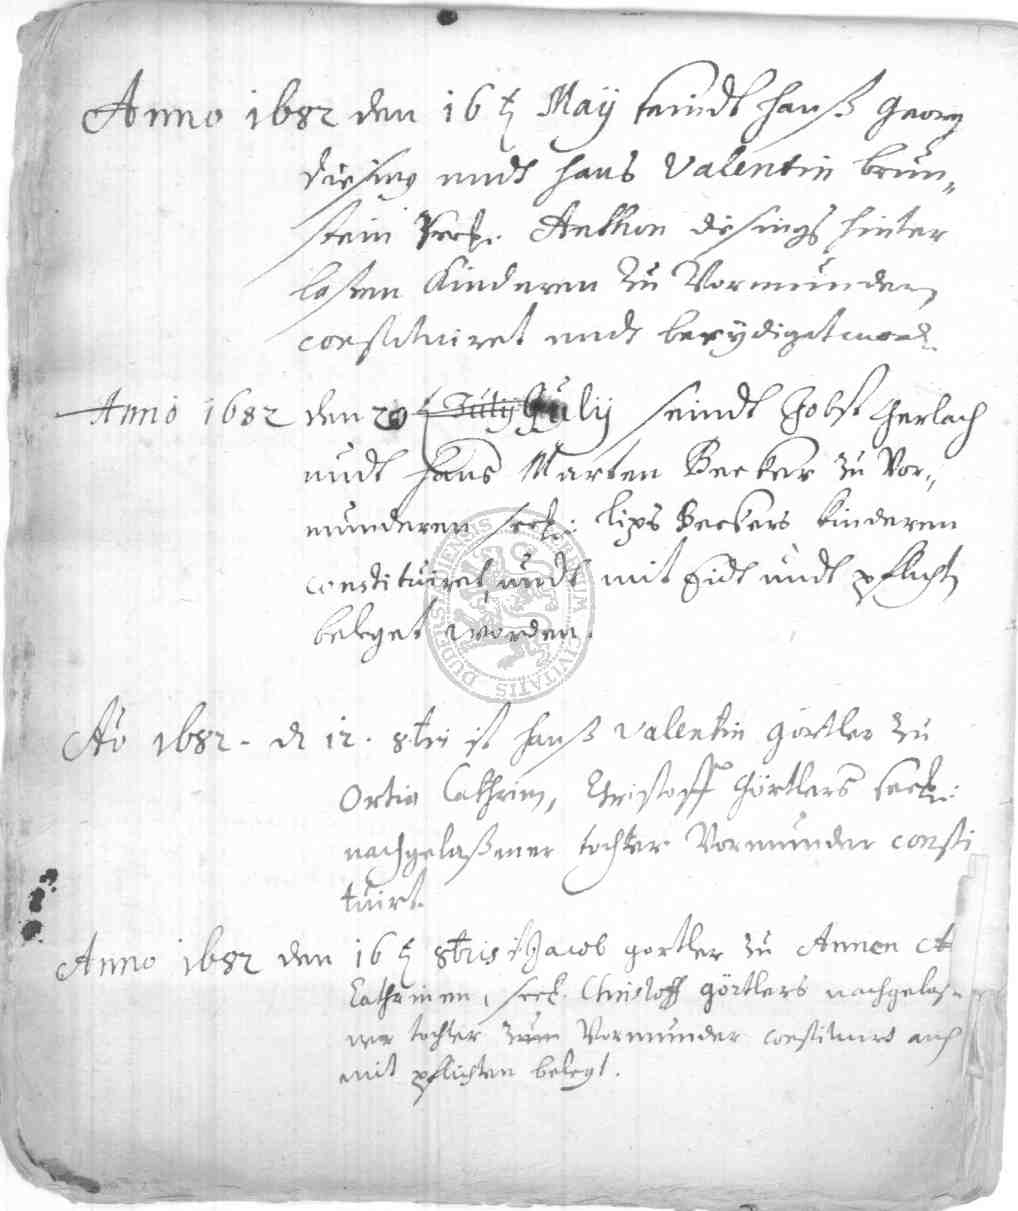 Anno 1682 den 16 t. Maÿ seindt Hanß Georg
Diesing undt Hans Valentin brun„
stein Seel: Anthon disings hinter
laßnen Kinderen zu Vormunderen
constituiret undt beeÿdiget word.
Anno 1682 den 20 t. Julÿ Julÿ seindt Jobst Gerlach
undt Hans Marten Becker zu Vor„
munderen seel: lips Beckers kinderen
constituiret, undt mit Eidt undt pflicht
beleget worden.
Aō 1682. d. 12. 8bris ist Hanß Valentin görtler zu
Ortia Cathrin, Christoff Görtlers seel:
nachgelaßener tochter Vormunder consti
tuirt.
Anno 1682 den 16 t. 8bris ist Jacob gortler zu Annen
Cathrinen, seel. Christoff görtlers nachgelaß„
ner tochter zum Vormunder constituirt auch
mit pflichten belegt.
SIGILLUM CIVITATIS DUDERSTADIENSIS